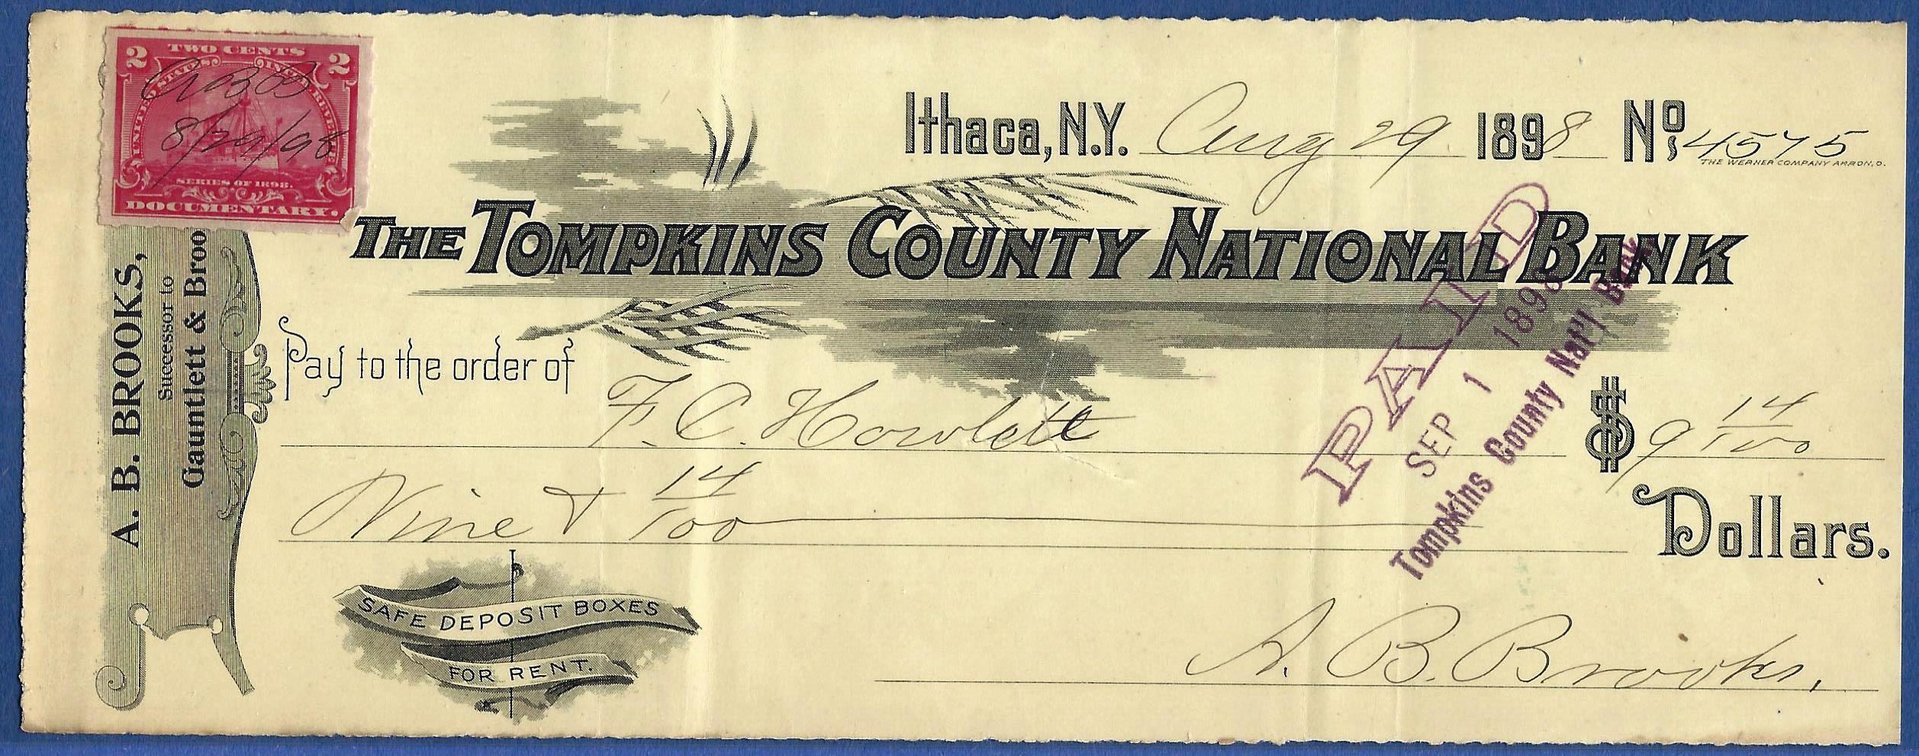 2 TWO CENTS 2
UNITED STATES INTER. REVENUE
ABB
8/29/98
SERIES OF 1898.
DOCUMENTARY.
Ithaca, N.Y. Aug 29 1898 No 4575
THE WERNER COMPANY AKRON, O.
THE TOMPKINS COUNTY NATIONAL BANK
A. B. BROOKS,
Successor to
Gauntlett & Broo
Pay to the order of
F. C. Howlett $9 14/100
Nine & 14/100 Dollars.
PAID
SEP 1 1898
Tompkins County Nat'l Bank
SAFE DEPOSIT BOXES
FOR RENT.
A. B. Brooks.